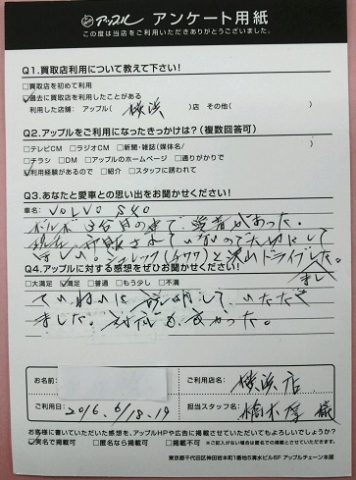 アップル アンケート用紙
この度は当店をご利用いただきありがとうございました。
Q1.買取店利用について教えて下さい!
□買取店を初めて利用
☑過去に買取店を利用したことがある
利用した店舗：アップル( 横浜 )店 その他( )
Q2.アップルをご利用になったきっかけは？(複数回答可)
□テレビCM □ラジオCM □新聞・雑誌(媒体名/ )
□チラシ □DM □アップルのホームページ □通りがかりで
☑利用経験があるので □紹介 □スタッフに誘われて
Q3.あなたと愛車との思い出をお聞かせください!
車名： VOLVO S40
ボルボ 3台目の車で 愛着があった。
販売されていないので大切にして
ほしい。 (チワワ)と沢山ドライブした。
Q4.アップルに対する感想をぜひお聞かせください!
□大満足 ☑満足 □普通 □もう少し □不満
ていねいに説明していただき
ました。対応も良かった。
お名前：
ご利用店名： 横浜店
ご利用日： 2016.6/18.19
担当スタッフ名： 柏木厚 様
お客様に書いていただいた感想を、アップルHPや広告に掲載させていただいてもよろしいでしょうか?
☑実名で掲載可 □匿名なら掲載可 □掲載不可 ※ご記入がない場合は匿名での掲載とさせていただきます。
東京都千代田区神田松本町1番地5清水ビル6F アップルチェーン本部